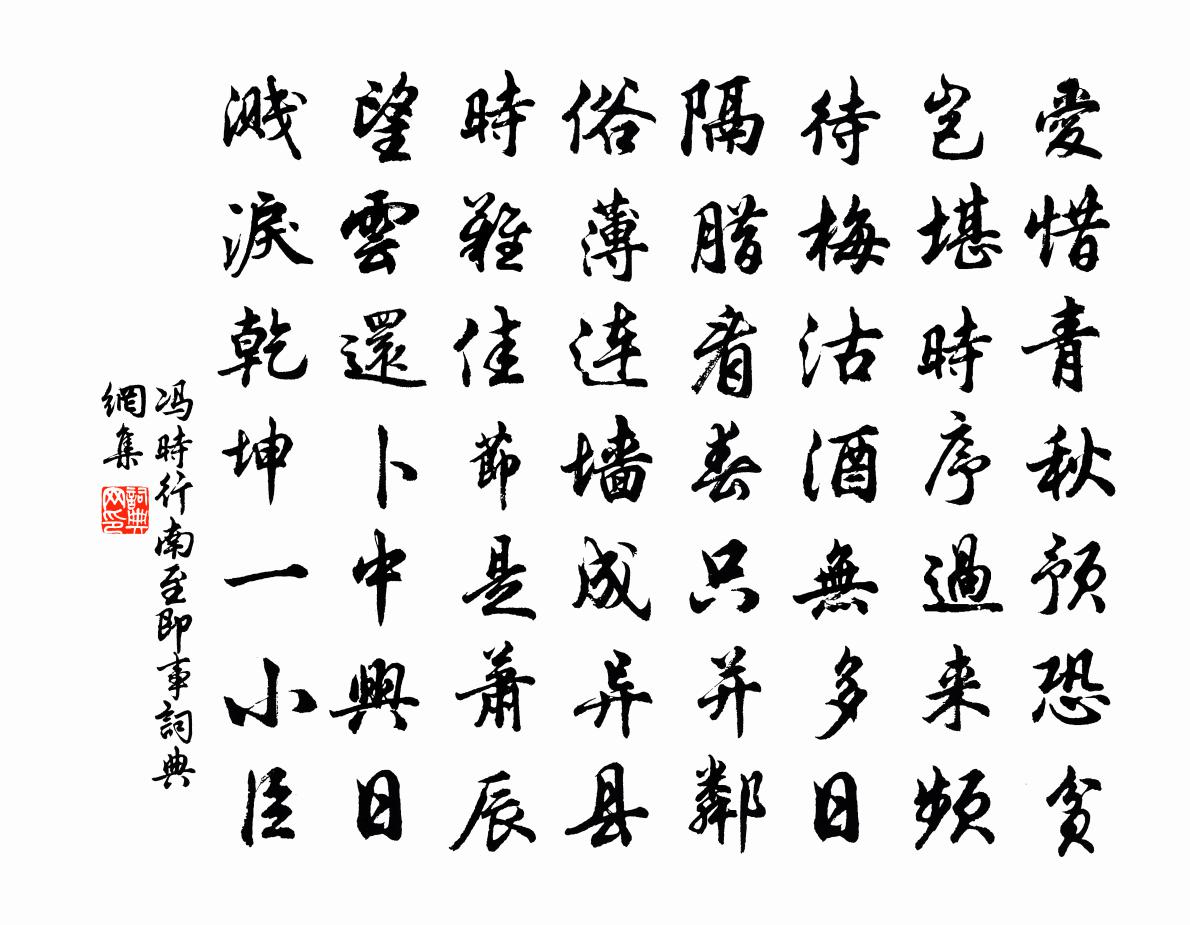 愛惜青秋预恐貧
岂堪時序過来頻
待梅沽酒無多日
隔腊看春只并鄰
俗薄连墙成异县
時難佳節是蕭辰
望雲還卜中興日
溅淚乾坤一小臣
冯時行南至即事詞典
網集
詞典网印